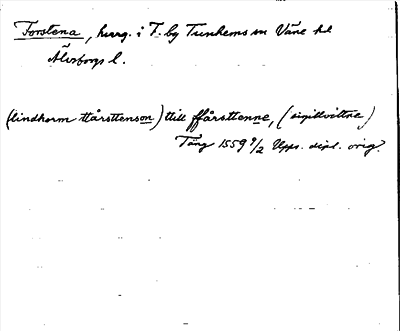 Forstena, herrg. i T. by Tunhems sn Väne hd
Älvsborgs l.
(lindhorm ttårsttenson) ttill ffårsttenne, (sigillvittne)
Täng 1559 9/2 Upps. dipl. orig.